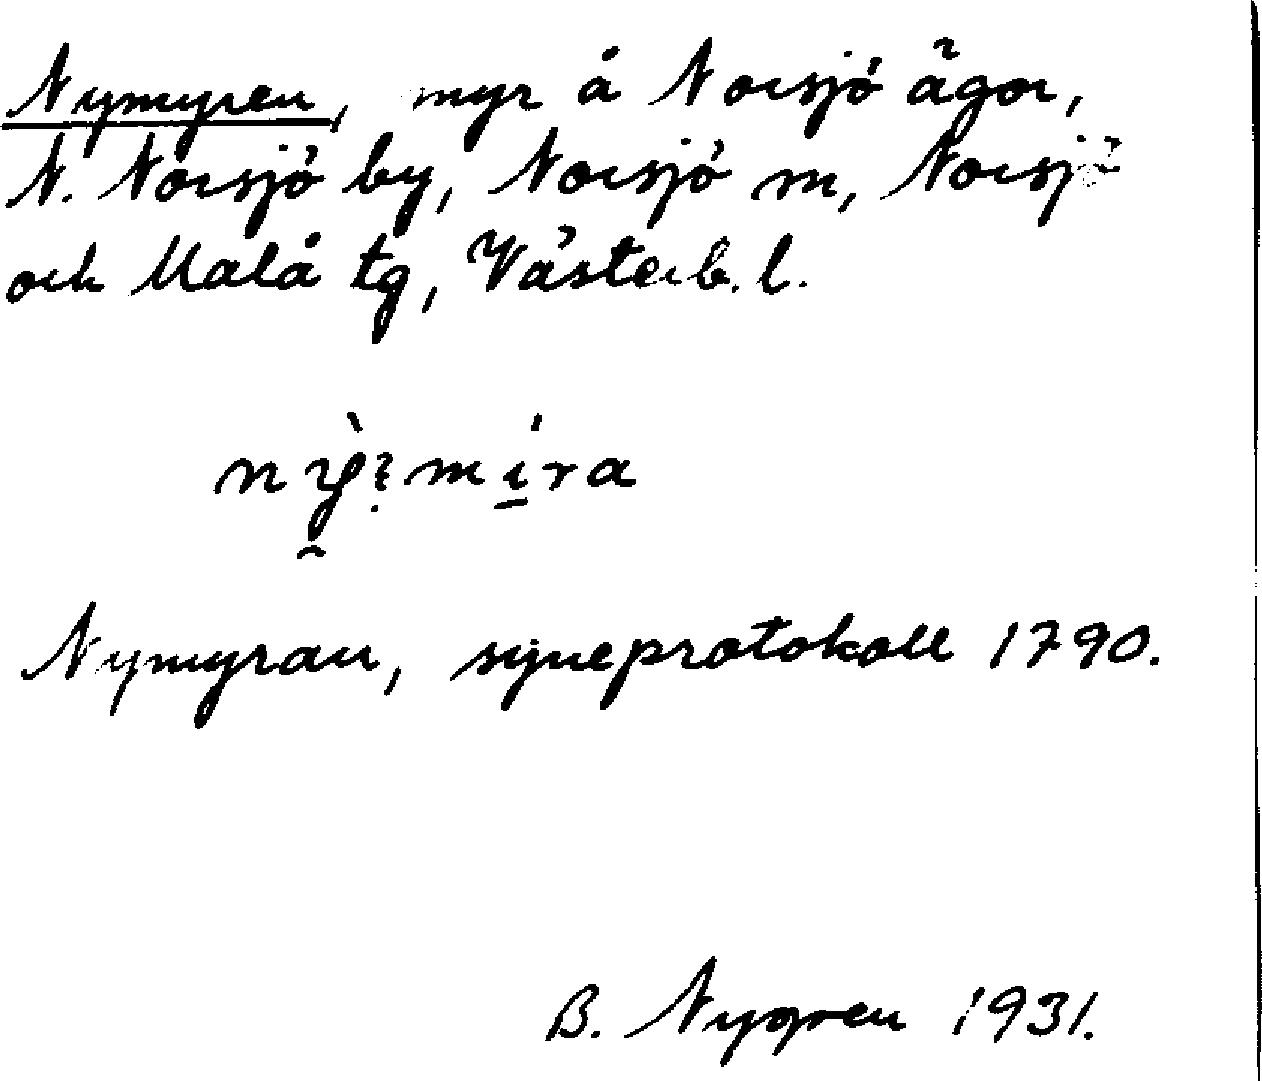 Nymyren, myr å Norsjö ägor,
N. Norsjö by, Norsjö sn, Norsjö
och Malå tg, Västerb. l.
Nymyran, syneprotokoll 1790.
B. Nygren 1931.